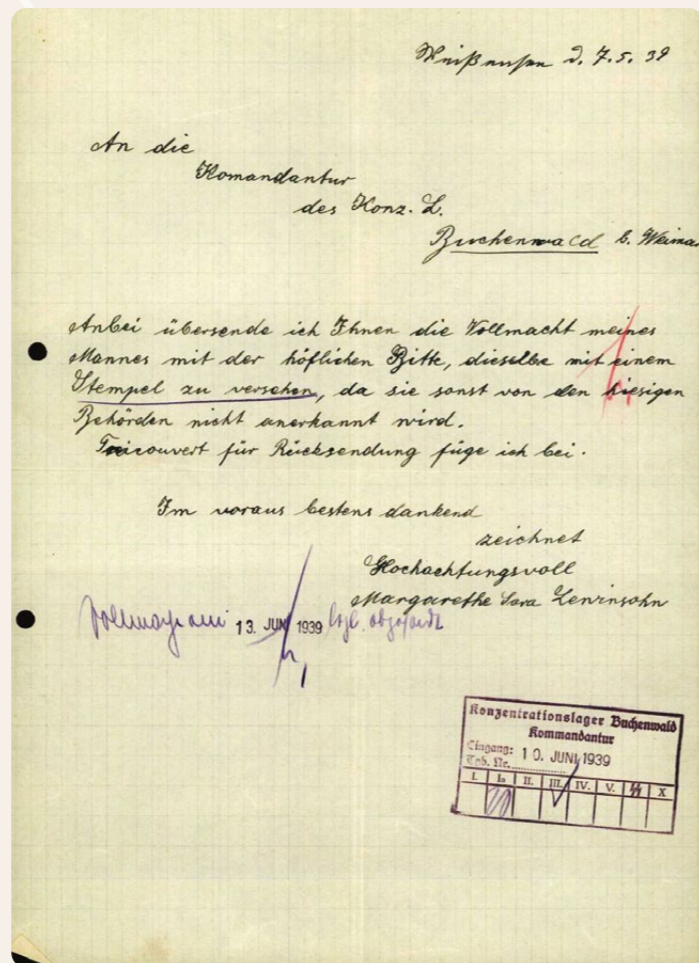 Weißensee d. 7.5.39
An die
Komandantur
des Konz. L.
Buchenwald b. Weimar
Anbei übersende ich Ihnen die Vollmacht meines
Mannes mit der höflichen Bitte, dieselbe mit einem
Stempel zu versehen, da sie sonst von den hiesigen
Behörden nicht anerkannt wird.
Freicouvert für Rücksendung füge ich bei.
Im voraus bestens dankend
zeichnet
Hochachtungsvoll
Margarethe Sara Lewinsohn
Vollmacht am 13. JUNI 1939 abgesandt
Konzentrationslager Buchenwald
Kommandantur
Eingang: 10. JUNI 1939
Tgb. Nr.
I. Ia II. III. IV. V. ᛋᛋ X